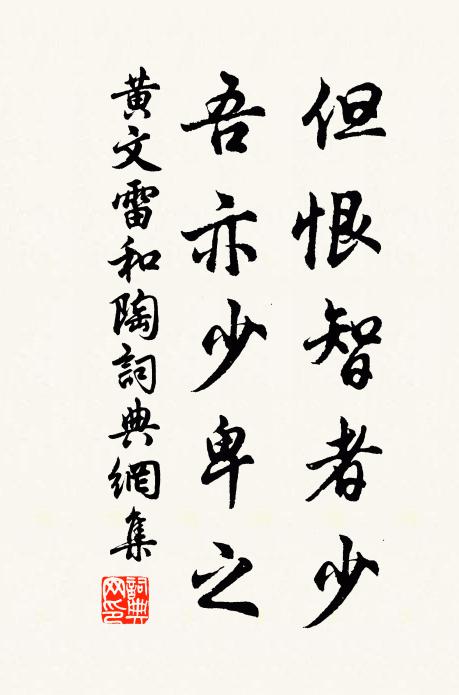 但恨智者少
吾亦少卑之
黃文雷和陶詞典網集
詞典網印